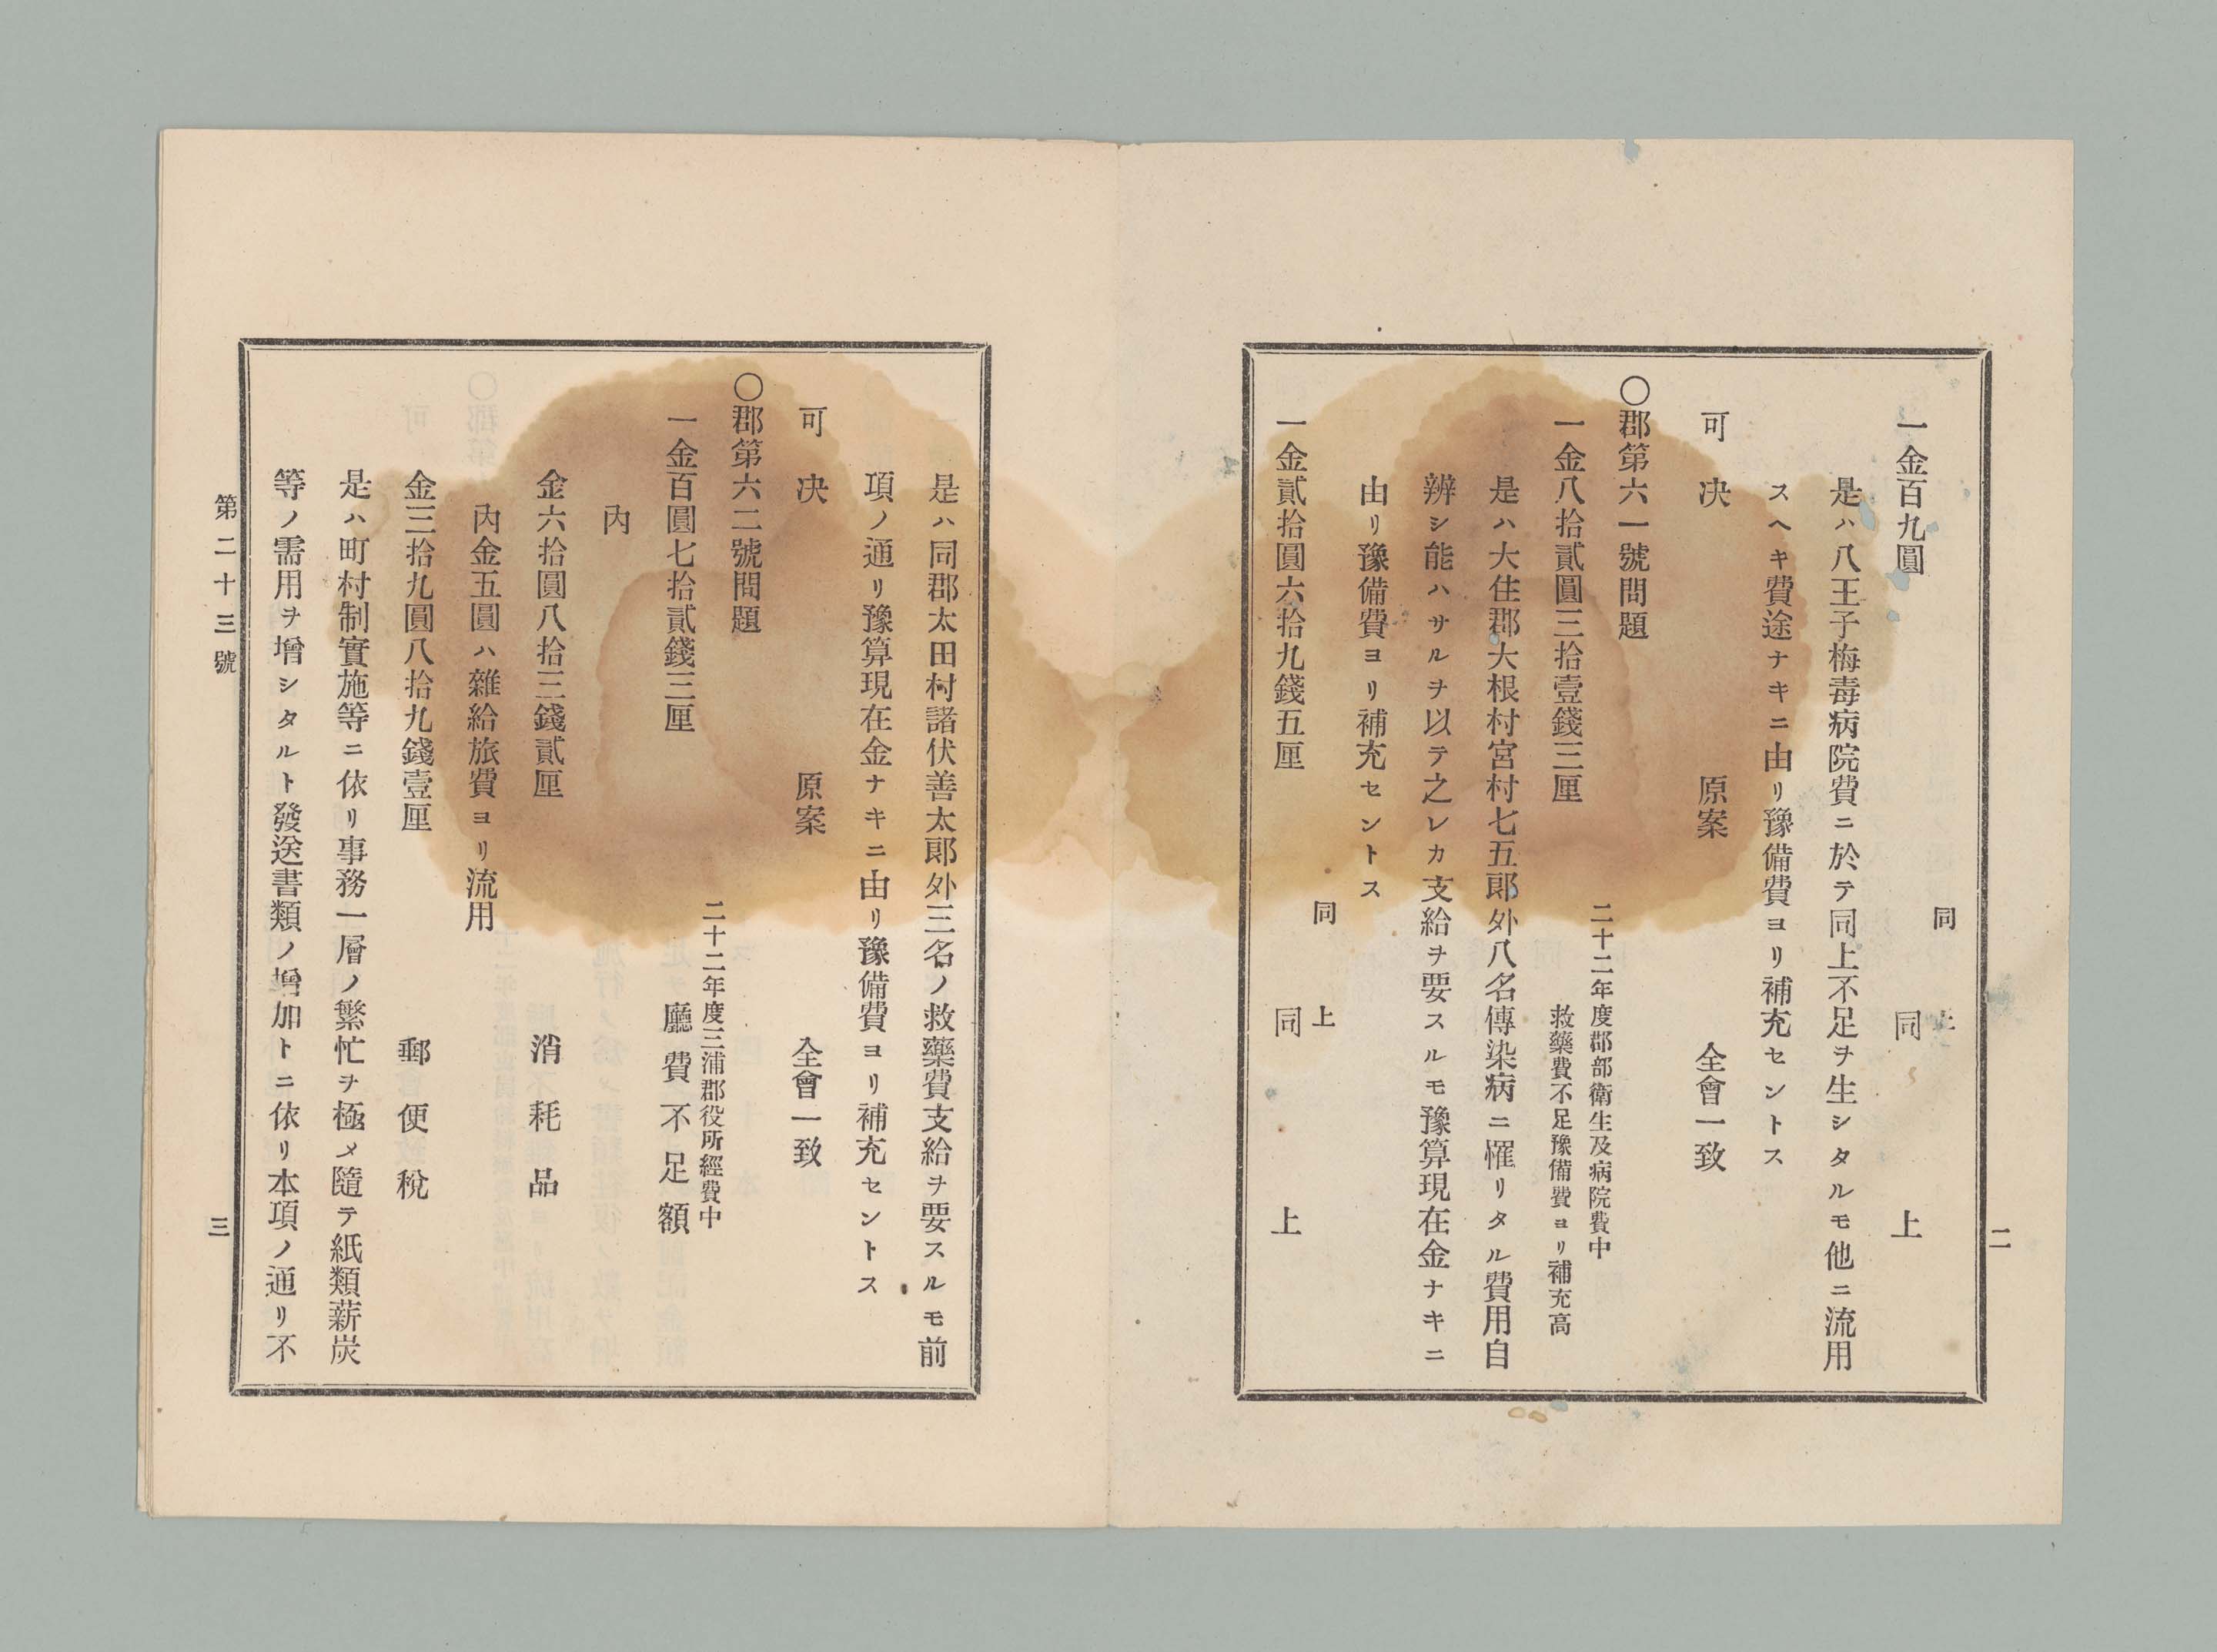 二
同　上
一金百九圓　同　上
是ハ八王子梅毒病院費ニ於テ同上不足ヲ生シタルモ他ニ流用
スヘキ費途ナキニ由リ豫備費ヨリ補充セントス
可决　原案　全會一致
〇郡第六一號問題
二十二年度郡部衛生及病院費中
救藥費不足豫備費ヨリ補充高
一金八拾貳圓三拾壹錢三厘
是ハ大住郡大根村宮村七五郎外八名傳染病ニ罹リタル費用自
辨シ能ハサルヲ以テ之レカ支給ヲ要スルモ豫算現在金ナキニ
由リ豫備費ヨリ補充セントス
同　上
一金貳拾圓六拾九錢五厘　同　上
是ハ同郡太田村諸伏善太郎外三名ノ救藥費支給ヲ要スルモ前
項ノ通リ豫算現在金ナキニ由リ豫備費ヨリ補充セントス
可决　原案　全會一致
〇郡第六二號問題
二十二年度三浦郡役所經費中
一金百圓七拾貳錢三厘　廳費不足額
內
金六拾圓八拾三錢貳厘　消耗品
內金五圓ハ雜給旅費ヨリ流用
金三拾九圓八拾九錢壹厘　郵便稅
是ハ町村制實施等ニ依リ事務一層ノ繁忙ヲ極メ隨テ紙類薪炭
等ノ需用ヲ增シタルト發送書類ノ增加トニ依リ本項ノ通リ不
第二十三號　三